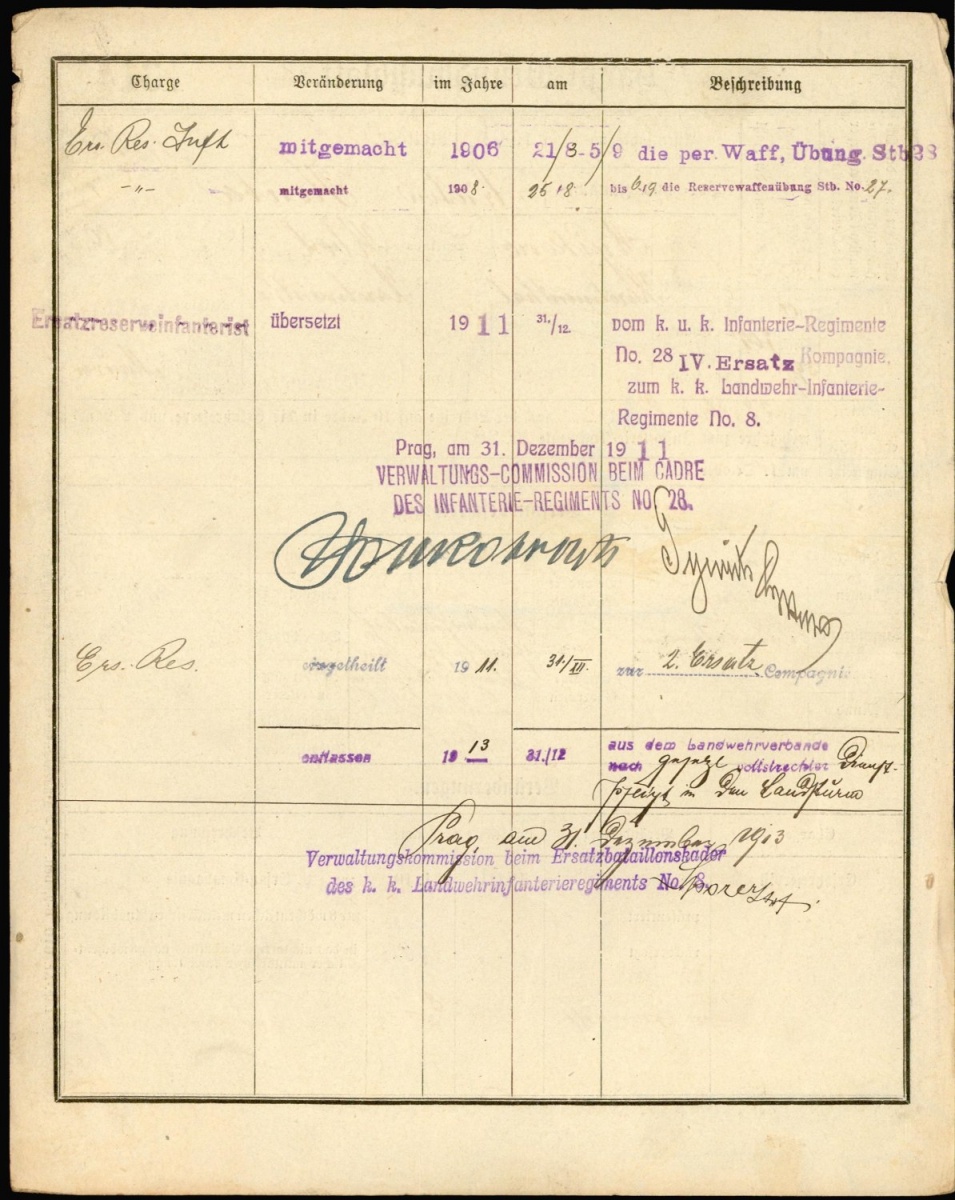 Charge Veränderung im Jahre am Beschreibung
Ers. Res. Inft mitgemacht 1906 21/8-5/9 die per. Waff, Übung. Stb 28
-"- mitgemacht 1908. 25/8. bis 6/9. die Reservewaffenübung Stb. No. 27.
Ersatzreserveinfanterist übersetzt 1911 31./12. vom k. u. k. Infanterie-Regimente
No. 28 IV. Ersatz Kompagnie.
zum k. k. Landwehr-Infanterie-
Regimente No. 8.
Prag, am 31. Dezember 1911
VERWALTUNGS-COMMISSION BEIM CADRE
DES INFANTERIE-REGIMENTS NO. 28.
Ers. Res. eingetheilt 1911. 31./XII. zur 2. Ersatz Compagnie
entlassen 1913 31./12 aus dem Landwehrverbande
nach gesetzl vollstreckter Dienst-
pflicht in den Landsturm
Prag, am 31. Dezember 1913
Verwaltungskommission beim Ersatzbataillonskader
des k. k. Landwehrinfanterieregiments No. 8.